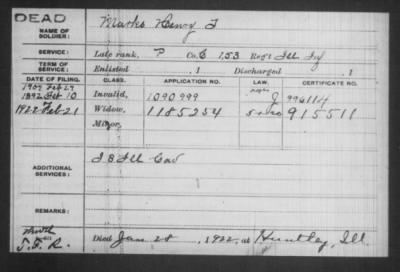 DEAD
NAME OF SOLDIER: Marks Henry F
SERVICE: Late rank, P Co. C 153 Reg't Ill Inf
TERM OF SERVICE: Enlisted , 1 Discharged , 1
DATE OF FILING. CLASS. APPLICATION NO. LAW. CERTIFICATE NO.
1907 Feb 27
1892 Feb 10 Invalid, 1090999 996114
1922 Feb 21 Widow, 1185254 915511
Minor,
ADDITIONAL SERVICES: I 8 Ill Cav
REMARKS:
Died Jan 28, 1922, at Huntley, Ill.